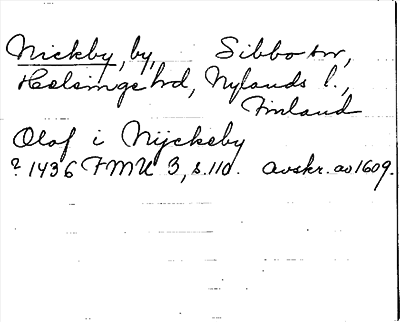 Nickby, by, Sibbo sn,
Helsinge hd, Nylands l.,
Finland
Olaf i Nijckeby
? 1436 FMU 3, s.110. avskr. av 1609.